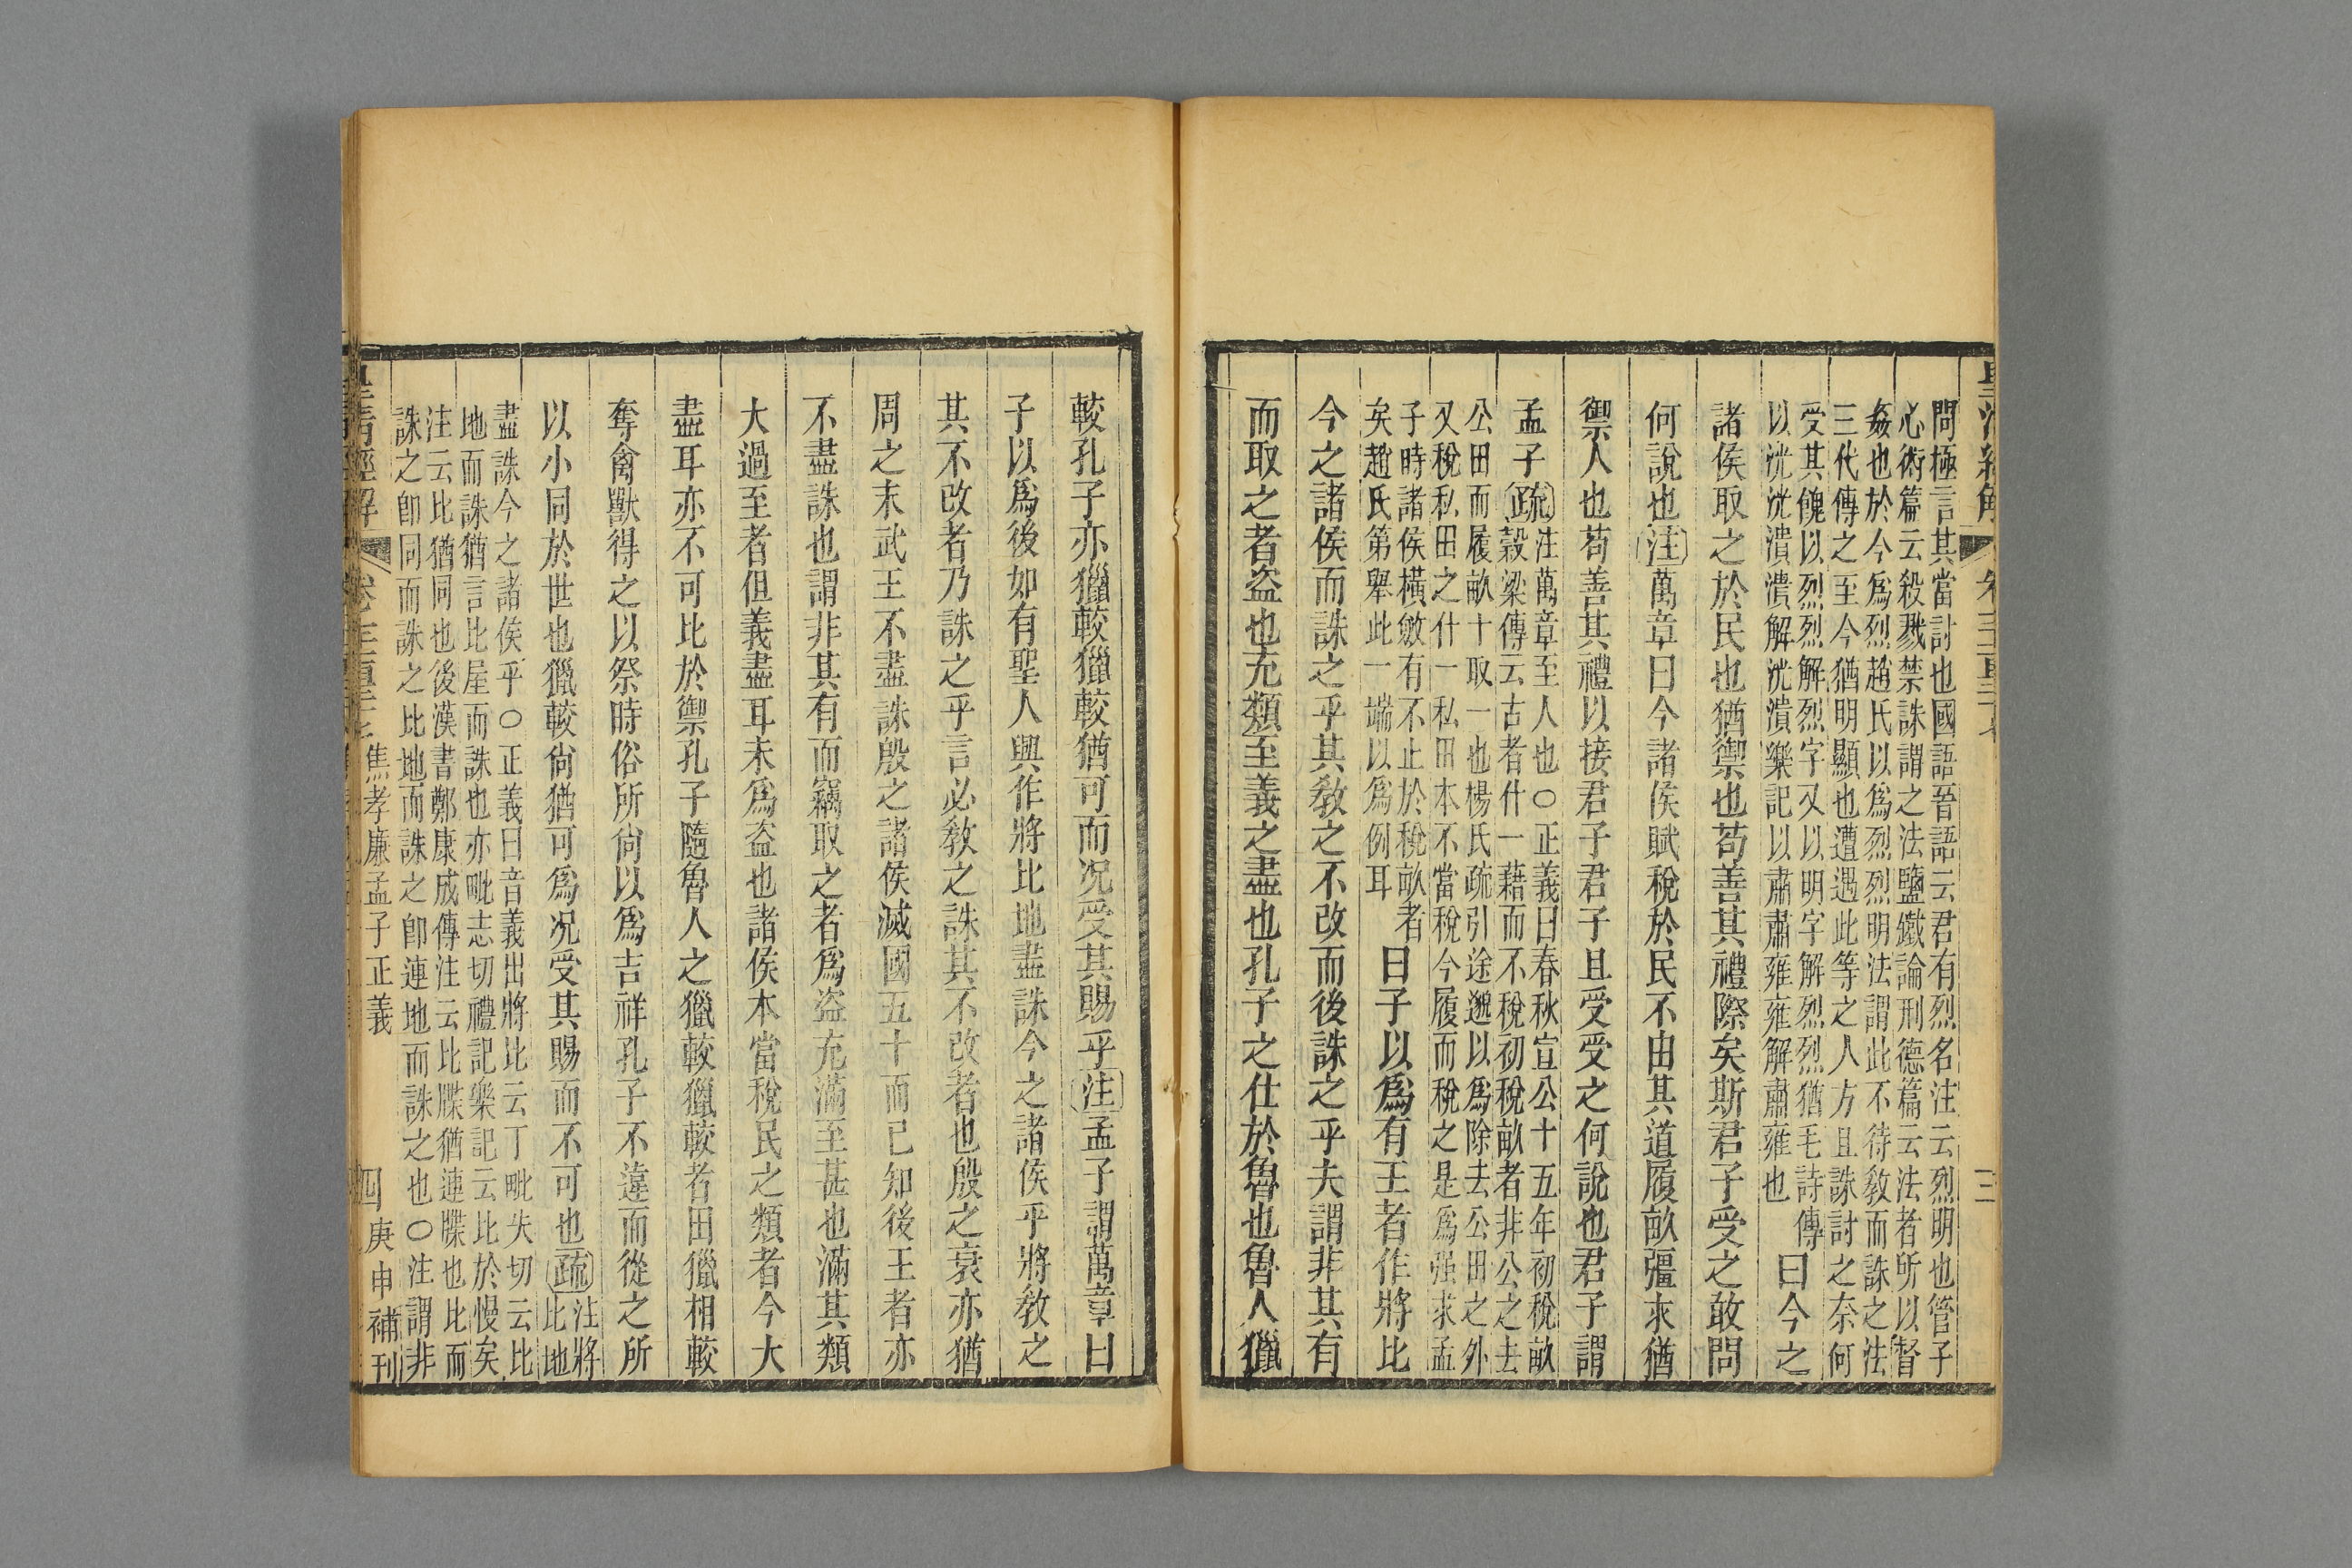 問極言其當討也國語晉語云君有烈名注云烈明也管子
心術篇云殺戮禁誅謂之法鹽鐵論刑德篇云法者所以督
姦也於今爲烈趙氏以爲烈烈明法謂此不待敎而誅之法
三代傳之至今猶明顯也遭遇此等之人方且誅討之奈何
受其餽以烈烈解烈字又以明字解烈烈猶毛詩傳
以洸洸潰潰解洸潰樂記以肅肅雍雍解肅雍也
曰今之
諸侯取之於民也猶禦也苟善其禮際矣斯君子受之敢問
何說也注萬章曰今諸侯賦稅於民不由其道履畝彊求猶
禦人也苟善其禮以接君子君子且受受之何說也君子謂
孟子疏
注萬章至人也○正義曰春秋宣公十五年初稅畝
穀梁傳云古者什一藉而不稅初稅畝者非公之去
公田而履畝十取一也楊氏疏引途遯以爲除去公田之外
又稅私田之什一私田本不當稅今履而稅之是爲强求孟
子時諸侯橫斂有不止於稅畝者
矣趙氏第舉此一端以爲例耳
曰子以爲有王者作將比
今之諸侯而誅之乎其敎之不改而後誅之乎夫謂非其有
而取之者盜也充類至義之盡也孔子之仕於魯也魯人獵
較孔子亦獵較獵較猶可而况受其賜乎注孟子謂萬章曰
子以爲後如有聖人興作將比地盡誅今之諸侯乎將敎之
其不改者乃誅之乎言必敎之誅其不改者也殷之衰亦猶
周之末武王不盡誅殷之諸侯滅國五十而已知後王者亦
不盡誅也謂非其有而竊取之者爲盜充滿至甚也滿其類
大過至者但義盡耳未爲盜也諸侯本當稅民之類者今大
盡耳亦不可比於禦孔子隨魯人之獵較獵較者田獵相較
奪禽獸得之以祭時俗所尙以爲吉祥孔子不違而從之所
以小同於世也獵較尙猶可爲况受其賜而不可也疏
注將
比地
盡誅今之諸侯乎○正義曰音義出將比云丁毗失切云比
地而誅猶言比屋而誅也亦毗志切禮記樂記云比於慢矣
注云比猶同也後漢書鄭康成傳注云比牒猶連牒也比而
誅之卽同而誅之比地而誅之卽連地而誅之也○注謂非
焦孝廉孟子正義
四
庚申補刊
三